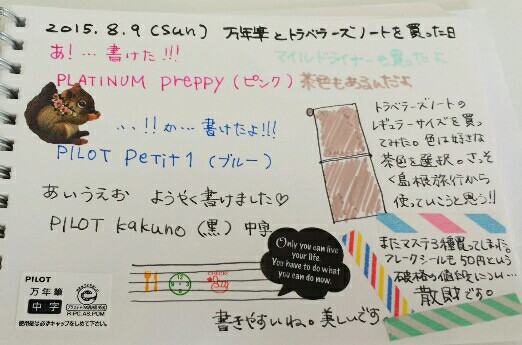 2015.8.9(Sun) 万年筆とトラベラーズノートを買った日
あ!…書けた!!!
マイルドライナーも買ったよ
PLATINUM preppy(ピンク)
茶色もあるんだよ
…!!か…書けたよ!!!
PILOT Petit1(ブルー)
トラベラーズノートの
レギュラーサイズを買っ
てみた。色は好きな
茶色を選択。さっそ
く島根旅行から
使っていこうと思う!!
あいうえお ようやく書けました♡
PILOT kakuno(黒)中字
Only you can live
your life.
You have to do what
you can do now.
またマステ3種買ってしまった。
フレークシールも50円という
破格の値段につい…
散財です。
PILOT
万年筆
中字
R.IPC.AS.POM
使用後は必ずキャップをしめて下さい。
書きやすいね。美しいです